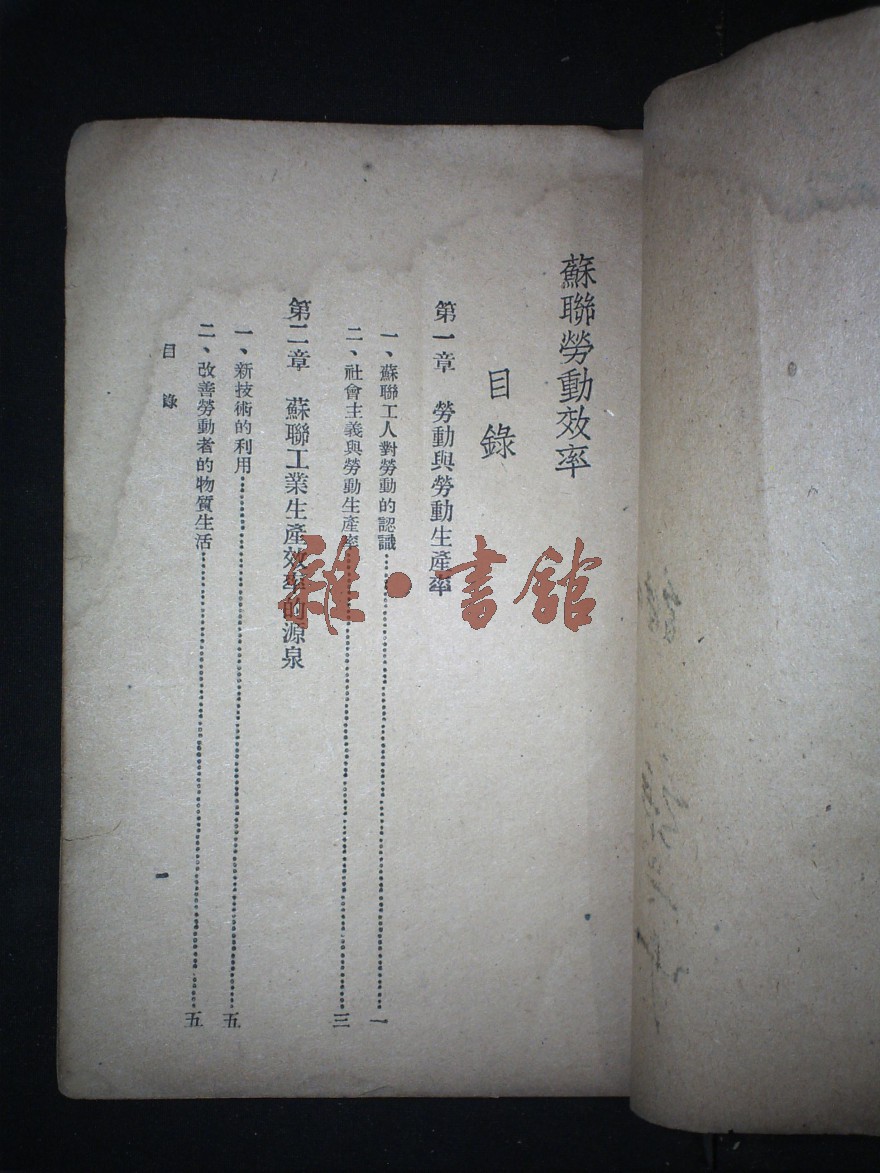 蘇聯勞動效率
目錄
第一章 勞動與勞動生產率
一、蘇聯工人對勞動的認識……一
二、社會主義與勞動生產率……三
第二章 蘇聯工業生產效率的源泉
一、新技術的利用……五
二、改善勞動者的物質生活……五
目錄
一
雜·書館